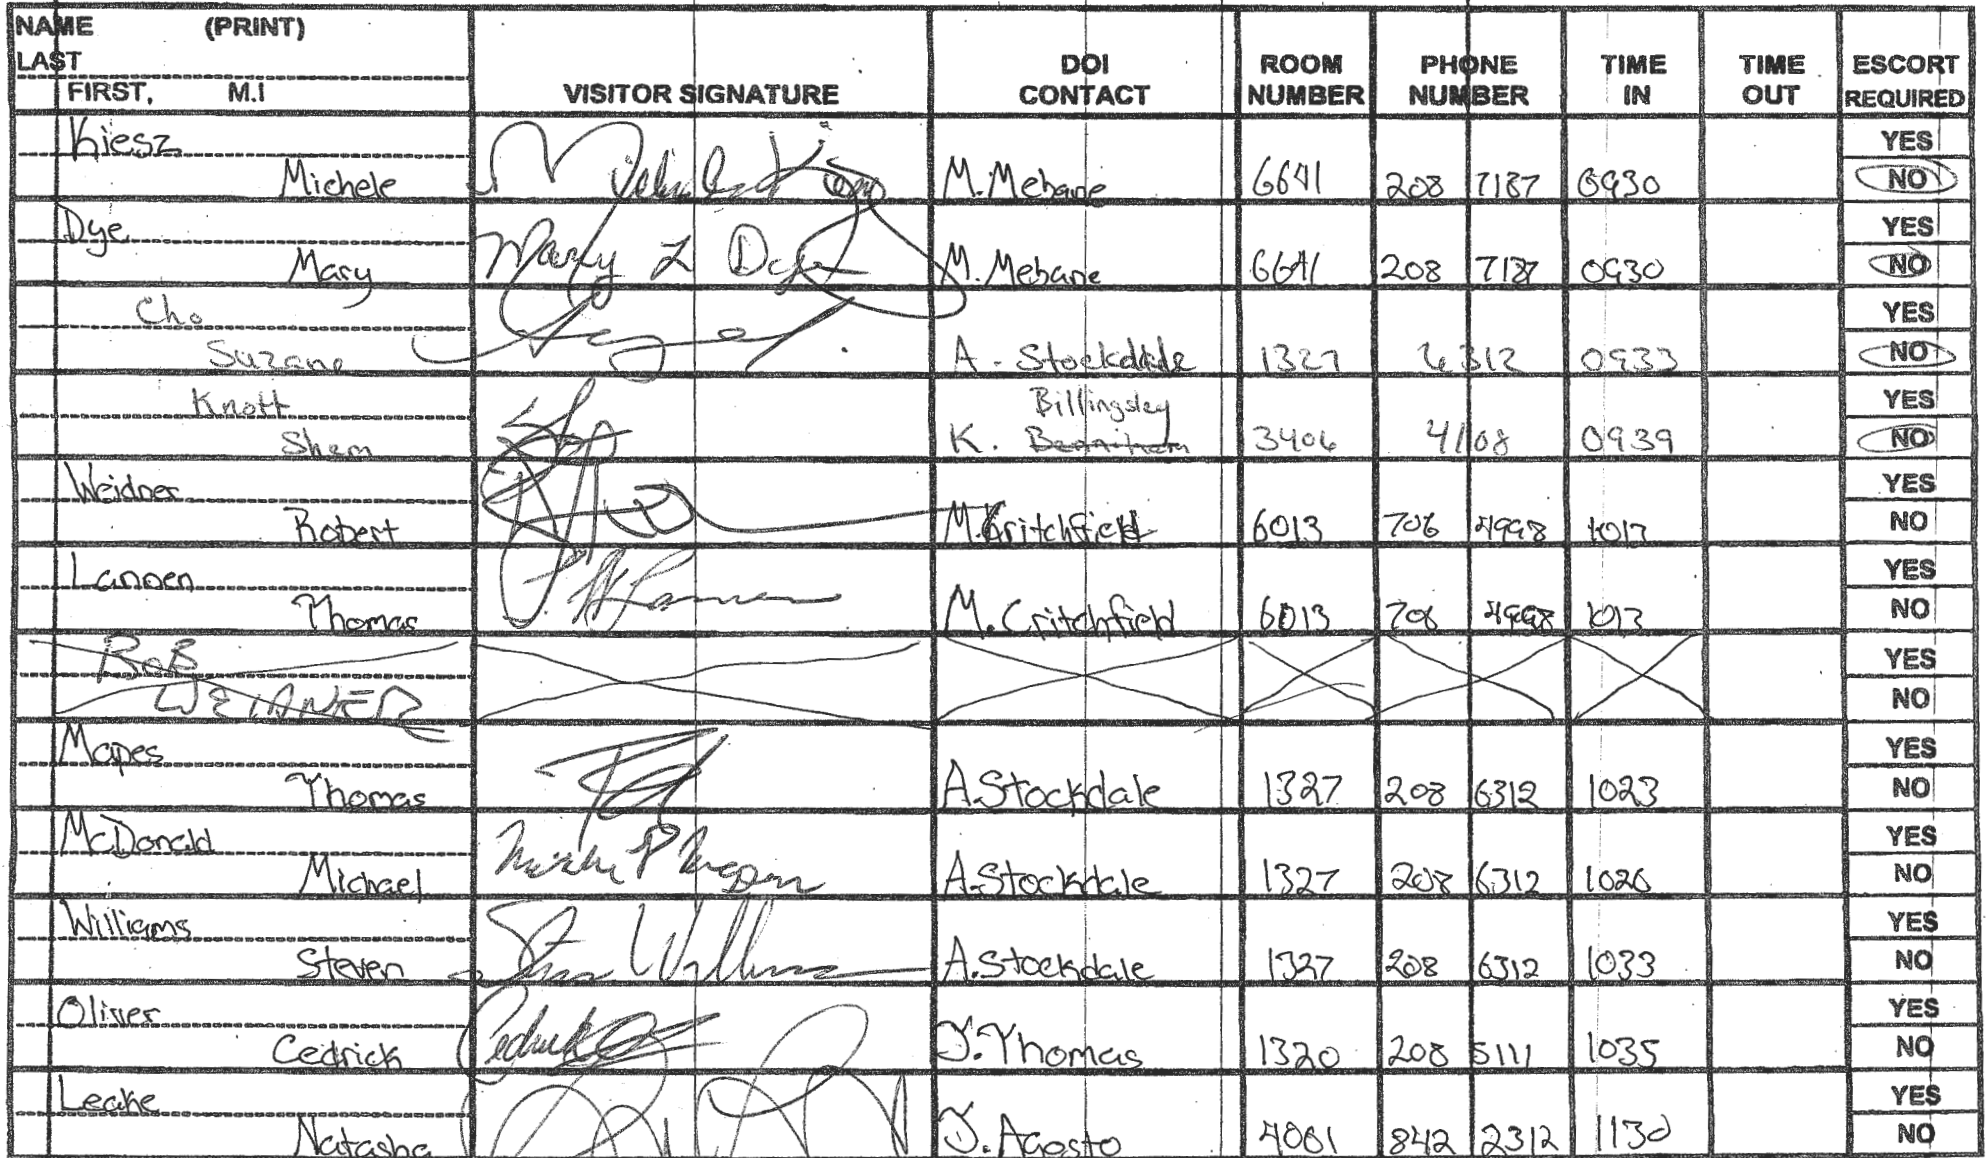 NAME (PRINT)
LAST
FIRST, M.I VISITOR SIGNATURE DOI CONTACT ROOM NUMBER PHONE NUMBER TIME IN TIME OUT ESCORT REQUIRED
Kiesz YES
Michele M. Mebane 6641 208 7187 0930 NO
Dye YES
Mary Mary L Dye M. Mebane 6641 208 7187 0930 NO
Cho YES
Suzane A. Stockdale 1327 6312 0933 NO
Knott Billingsley YES
Shem K. 3406 4108 0939 NO
Weidner YES
Robert M. Critchfield 6013 706 4998 1017 NO
Lannen YES
Thomas M. Critchfield 6013 708 4998 1017 NO
BOB YES
WEIDNER NO
Mapes YES
Thomas A. Stockdale 1327 208 6312 1023 NO
McDonald YES
Michael A. Stockdale 1327 208 6312 1026 NO
Williams YES
Steven Steven Williams A. Stockdale 1327 208 6312 1033 NO
Oliver YES
Cedrick Cedrick J. Thomas 1320 208 5111 1035 NO
Leake YES
Natasha J. Agosto 4001 842 2312 1130 NO